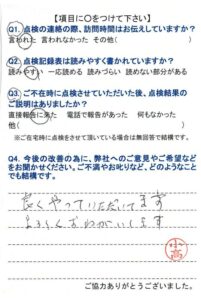 【項目に〇をつけて下さい】
Q1. 点検の連絡の際、訪問時間はお伝えしていますか?
言われた 言われなかった その他( )
Q2. 点検記録表は読みやすく書かれていますか?
読みやすい 一応読める 読みづらい 読めない部分がある
Q3. ご不在時に点検させていただいた後、点検結果の
ご説明はありましたか?
直接報告に来た 電話で報告があった 何もなかった
他( )
※ご在宅時に点検をさせて頂いている場合は無回答で結構です。
Q4. 今後の改善の為に、弊社へのご意見やご希望など
をお聞かせください。ご不満やお叱りなど、どのようなこと
でも結構です。
良くやっていただいてます
よろしくおねがいします
小高
ご協力ありがとうございました。